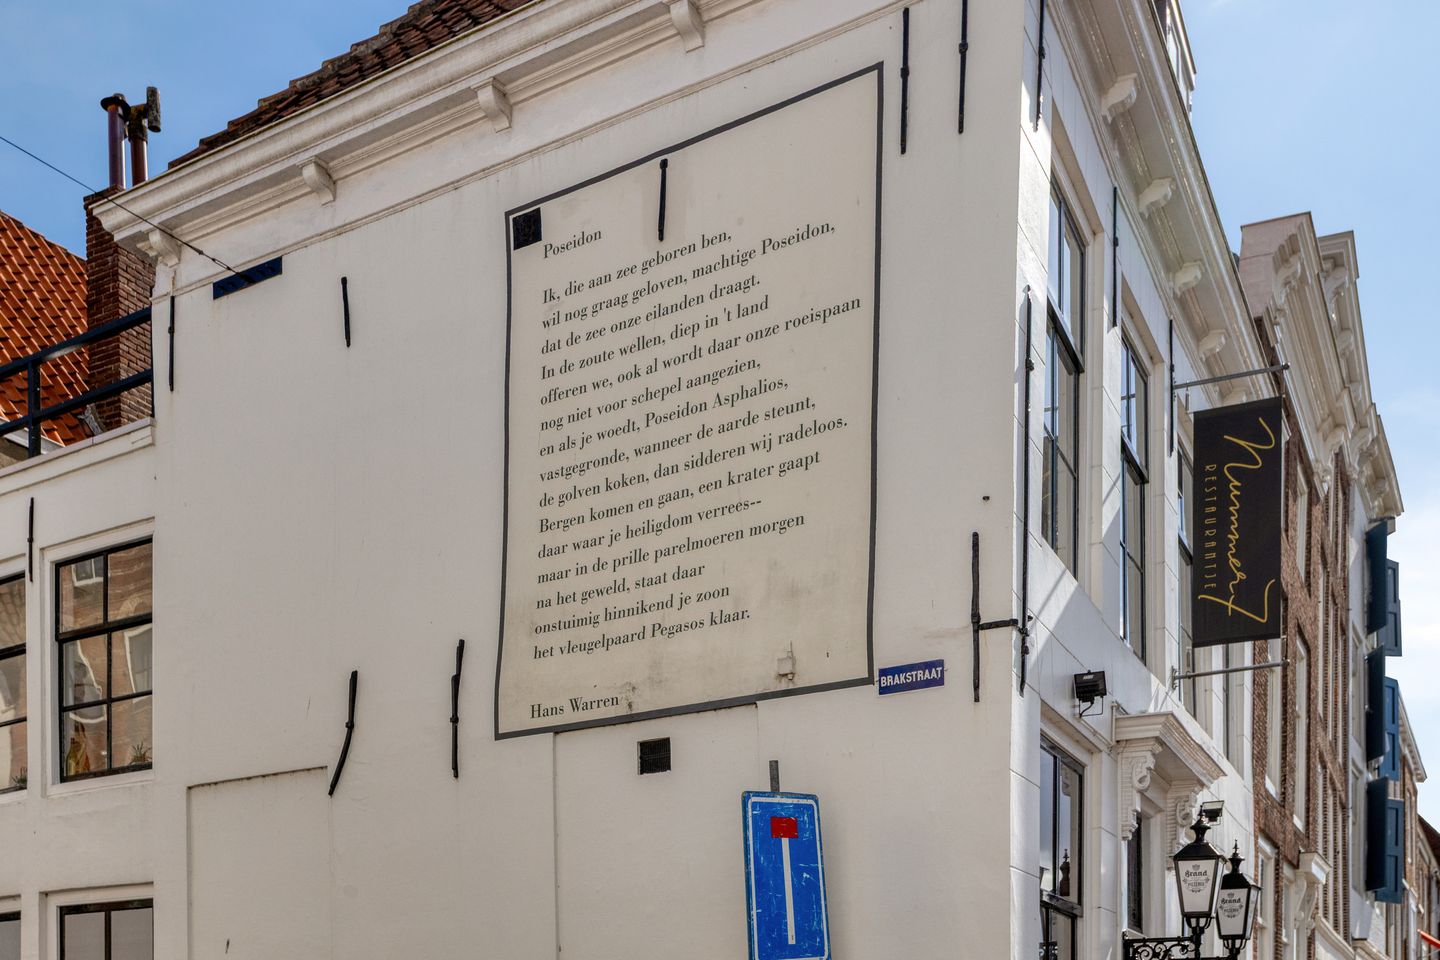 Poseidon
Ik, die aan zee geboren ben,
wil nog graag geloven, machtige Poseidon,
dat de zee onze eilanden draagt.
In de zoute wellen, diep in 't land
offeren we, ook al wordt daar onze roeispaan
nog niet voor schepel aangezien,
en als je woedt, Poseidon Asphalios,
vastgegronde, wanneer de aarde steunt,
de golven koken, dan sidderen wij radeloos.
Bergen komen en gaan, een krater gaapt
daar waar je heiligdom verrees--
maar in de prille parelmoeren morgen
na het geweld, staat daar
onstuimig hinnikend je zoon
het vleugelpaard Pegasos klaar.
Hans Warren
BRAKSTRAAT
Nummer 7
RESTAURANTJE
Brand
PILSENER
Brand
PILSENER